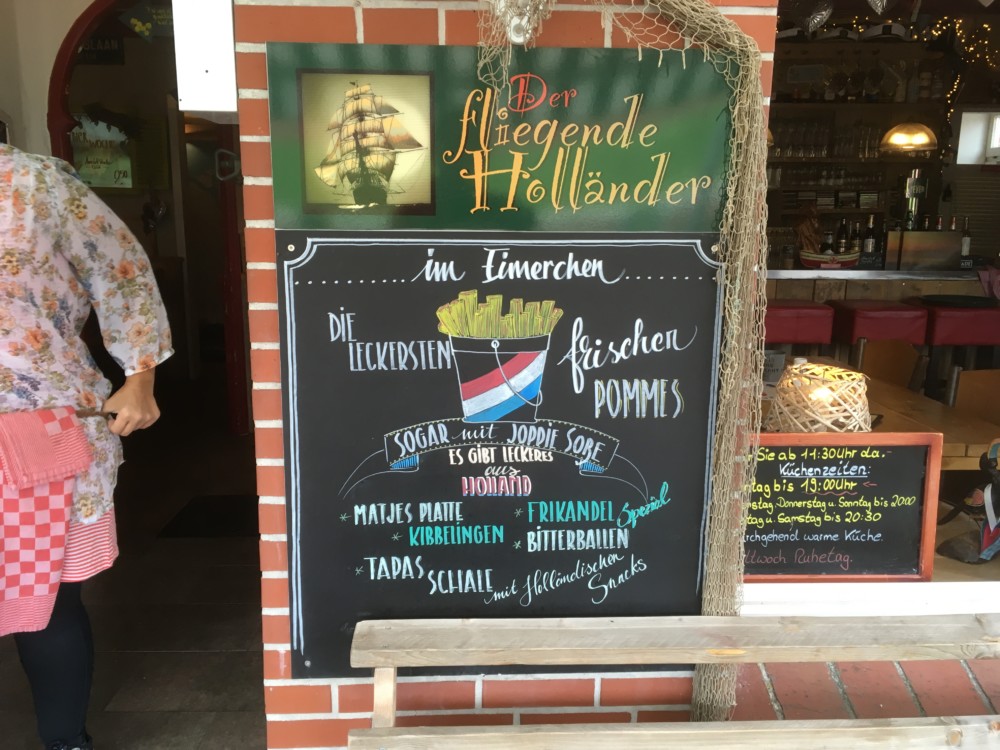 Der
fliegende
Holländer
...... im Eimerchen ......
DIE
LECKERSTEN
frischen
POMMES
SOGAR mit JOPPIE SOßE
ES GIBT LECKERES
aus
HOLLAND
* MATJES PLATTE
* KIBBELINGEN
* FRIKANDEL Spezial
* BITTERBALLEN
* TAPAS SCHALE mit Holländischen Snacks
Sie ab 11:30 Uhr da.-
Küchenzeiten:
tag bis 19:00 Uhr
Donnerstag u. Sonntag bis 20:00
u. Samstag bis 20:30
warme Küche.
Ruhetag.